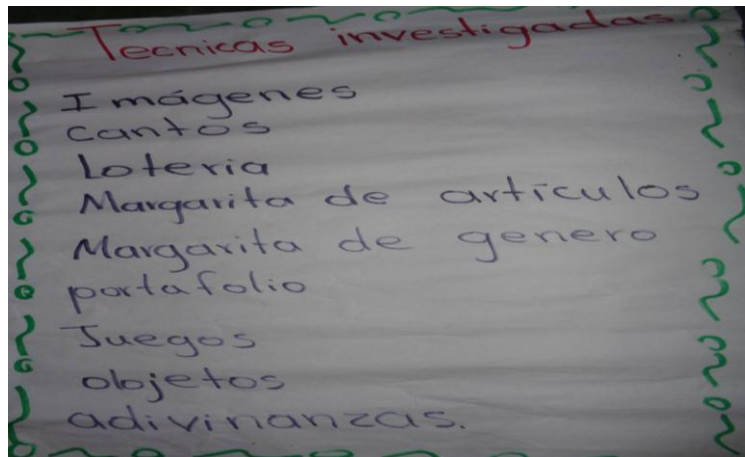 Tecnicas investigadas.
Imágenes
cantos
Loteria
Margarita de artículos
Margarita de genero
portafolio
Juegos
objetos
adivinanzas.